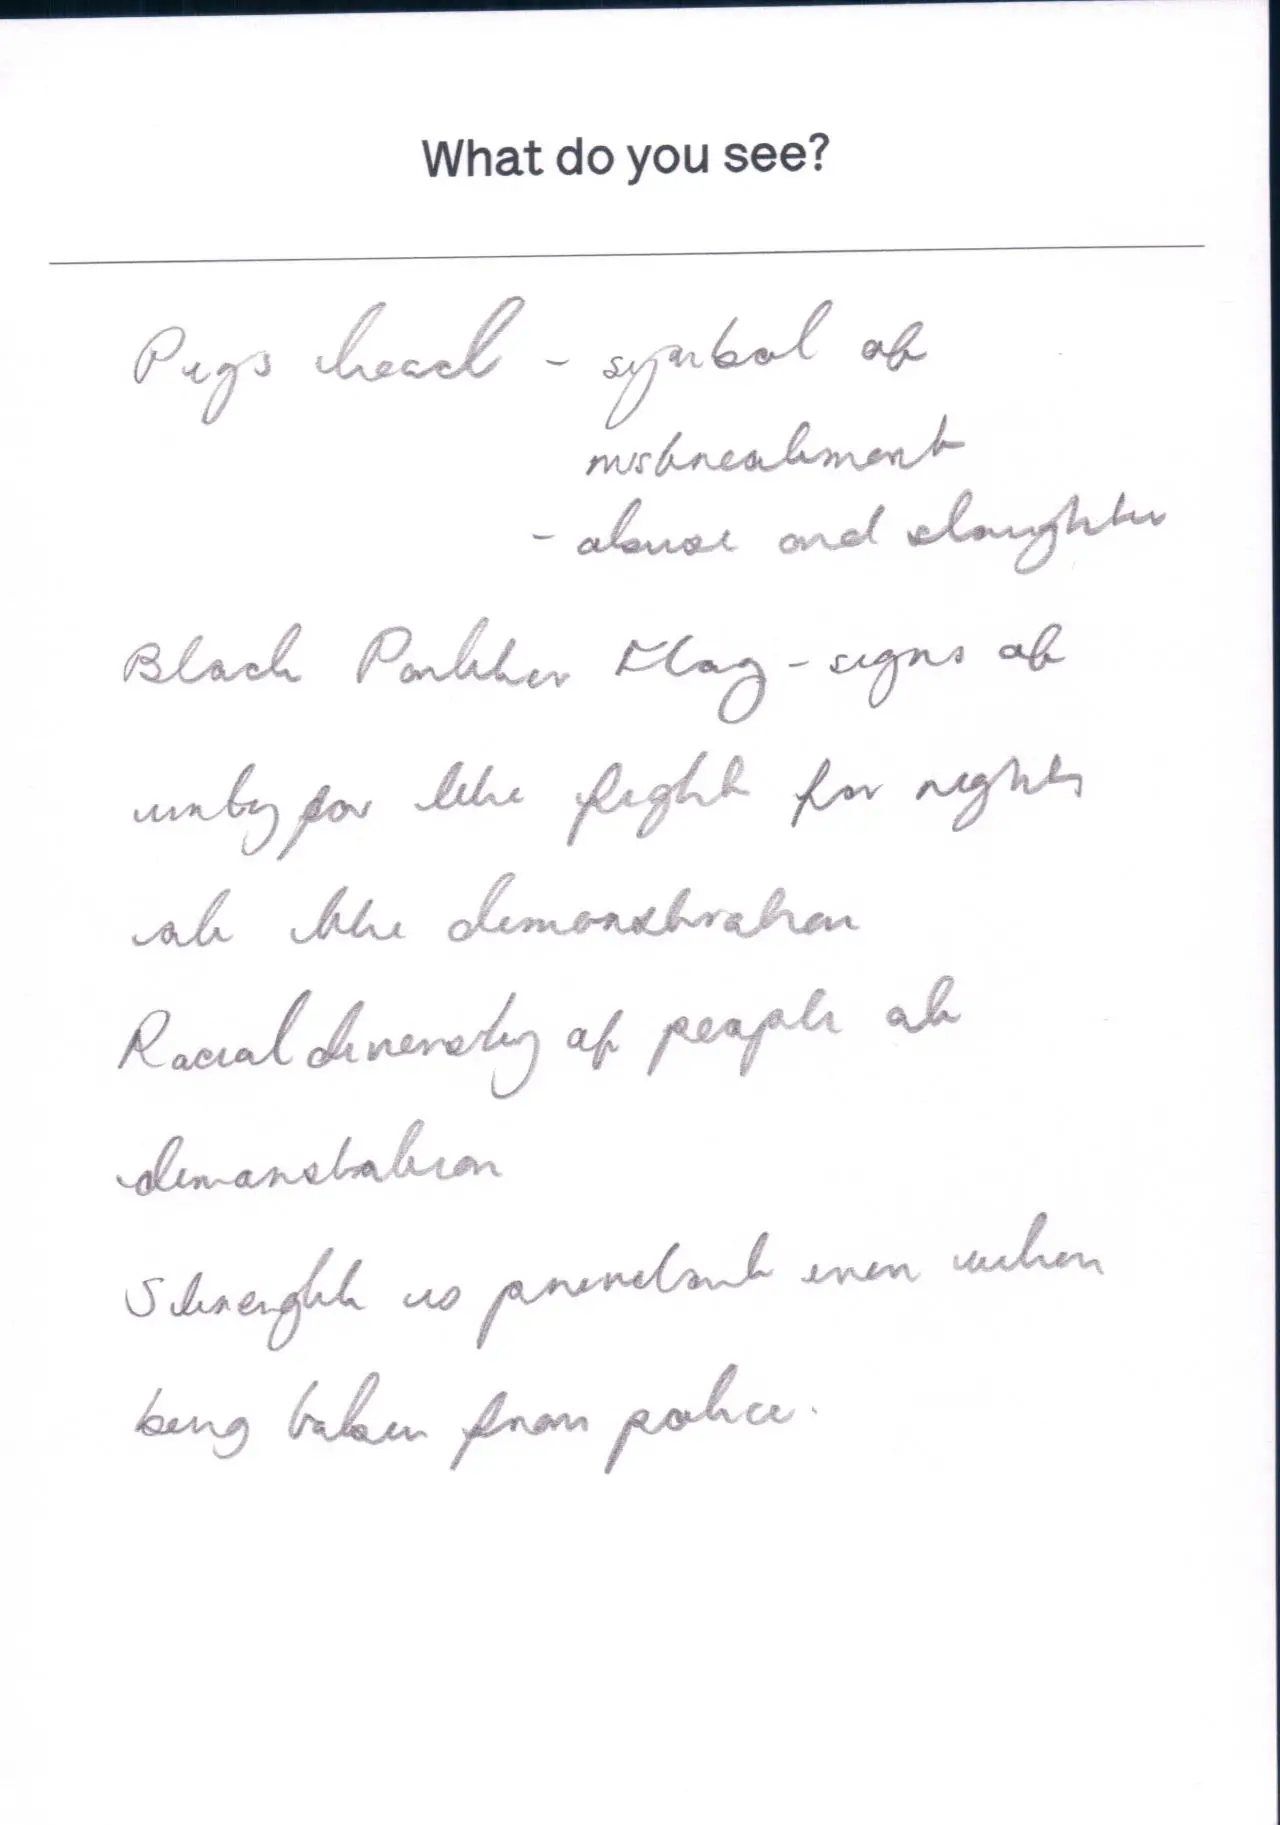 What do you see?
Pigs head - symbol of
mistreatment
- abuse and slaughter
Black Panther Flag - signs of
unity for the fight for rights
at the demonstration
Racial diversity of people at
demonstation
Strenght is prevelant even when
being taken from police.